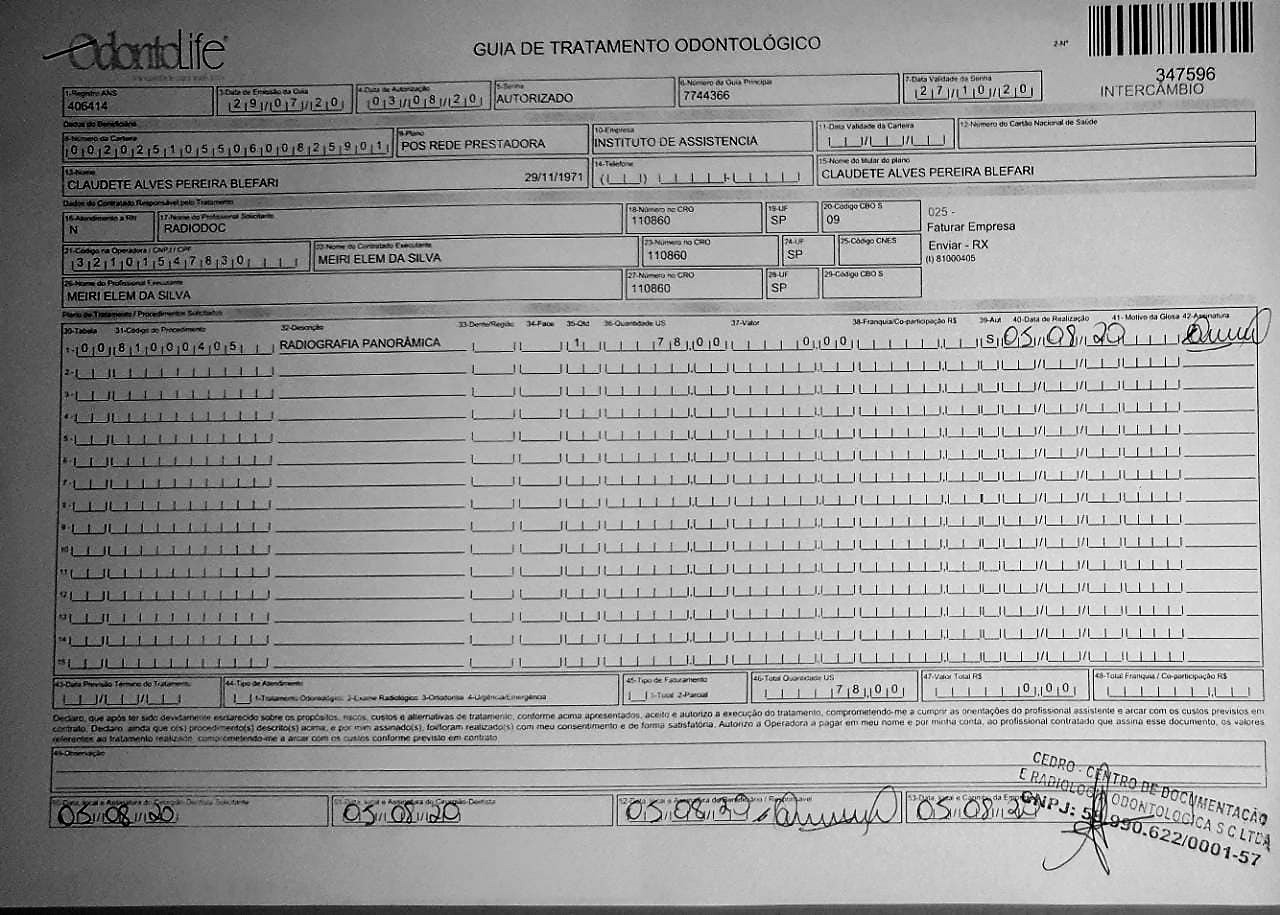 OdontoLife
GUIA DE TRATAMENTO ODONTOLÓGICO
2-Nº
347596
INTERCÂMBIO
1-Registro ANS
406414
3-Data de Emissão da Guia
29/07/20
4-Data de Autorização
03/08/20
5-Senha
AUTORIZADO
6-Número da Guia Principal
7744366
7-Data Validade da Senha
27/10/20
Dados do Beneficiário
8-Número da Carteira
00202510550600825901
9-Plano
POS REDE PRESTADORA
10-Empresa
INSTITUTO DE ASSISTENCIA
11-Data Validade da Carteira
12-Número do Cartão Nacional de Saúde
13-Nome
CLAUDETE ALVES PEREIRA BLEFARI 29/11/1971
14-Telefone
15-Nome do titular do plano
CLAUDETE ALVES PEREIRA BLEFARI
Dados do Contratado Responsável pelo Tratamento
16-Atendimento a RN
N
17-Nome do Profissional Solicitante
RADIODOC
18-Número no CRO
110860
19-UF
SP
20-Código CBO S
09
025 -
Faturar Empresa
Enviar - RX
(I) 81000405
21-Código na Operadora / CNPJ / CPF
32101547830
22-Nome do Contratado Executante
MEIRI ELEM DA SILVA
23-Número no CRO
110860
24-UF
SP
25-Código CNES
26-Nome do Profissional Executante
MEIRI ELEM DA SILVA
27-Número no CRO
110860
28-UF
SP
29-Código CBO S
Plano de Tratamento / Procedimentos Solicitados
30-Tabela 31-Código do Procedimento 32-Descrição 33-Dente/Região 34-Face 35-Qtd 36-Quantidade US 37-Valor 38-Franquia/Co-participação R$ 39-Aut 40-Data de Realização 41- Motivo da Glosa 42-Assinatura
1- 00 81000405 RADIOGRAFIA PANORÂMICA 1 78,00 0,00 S 05/08/20
2-
3-
4-
5-
6-
7-
8-
9-
10
11
12
13
14
15
43-Data Previsão Término do Tratamento
44-Tipo de Atendimento
1-Tratamento Odontológico 2-Exame Radiológico 3-Ortodontia 4-Urgência/Emergência
45-Tipo de Faturamento
1-Total 2-Parcial
46-Total Quantidade US
78,00
47-Valor Total R$
0,00
48-Total Franquia / Co-participação R$
Declaro, que após ter sido devidamente esclarecido sobre os propósitos, riscos, custos e alternativas de tratamento, conforme acima apresentados, aceito e autorizo a execução do tratamento, comprometendo-me a cumprir as orientações do profissional assistente e arcar com os custos previstos em
contrato. Declaro, ainda que o(s) procedimento(s) descrito(s) acima, e por mim assinado(s), foi/foram realizado(s) com meu consentimento e de forma satisfatória. Autorizo a Operadora a pagar em meu nome e por minha conta, ao profissional contratado que assina esse documento, os valores
referentes ao tratamento realizado, comprometendo-me a arcar com os custos conforme previsto em contrato.
49-Observação
50-Data, local e Assinatura do Cirurgião-Dentista Solicitante
05/08/20
51-Data, local e Assinatura do Cirurgião-Dentista
05/08/20
52-Data, local e Assinatura do Beneficiário / Responsável
05/08/20
53-Data, local e Carimbo da Empresa
05/08/20
CEDRO - CENTRO DE DOCUMENTAÇÃO
E RADIOLOGIA ODONTOLOGICA S C LTDA